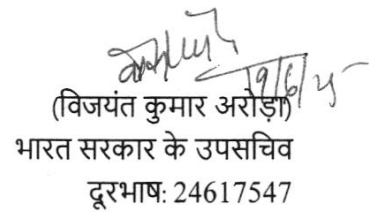 19/6/25
(विजयंत कुमार अरोड़ा)
भारत सरकार के उपसचिव
दूरभाष: 24617547